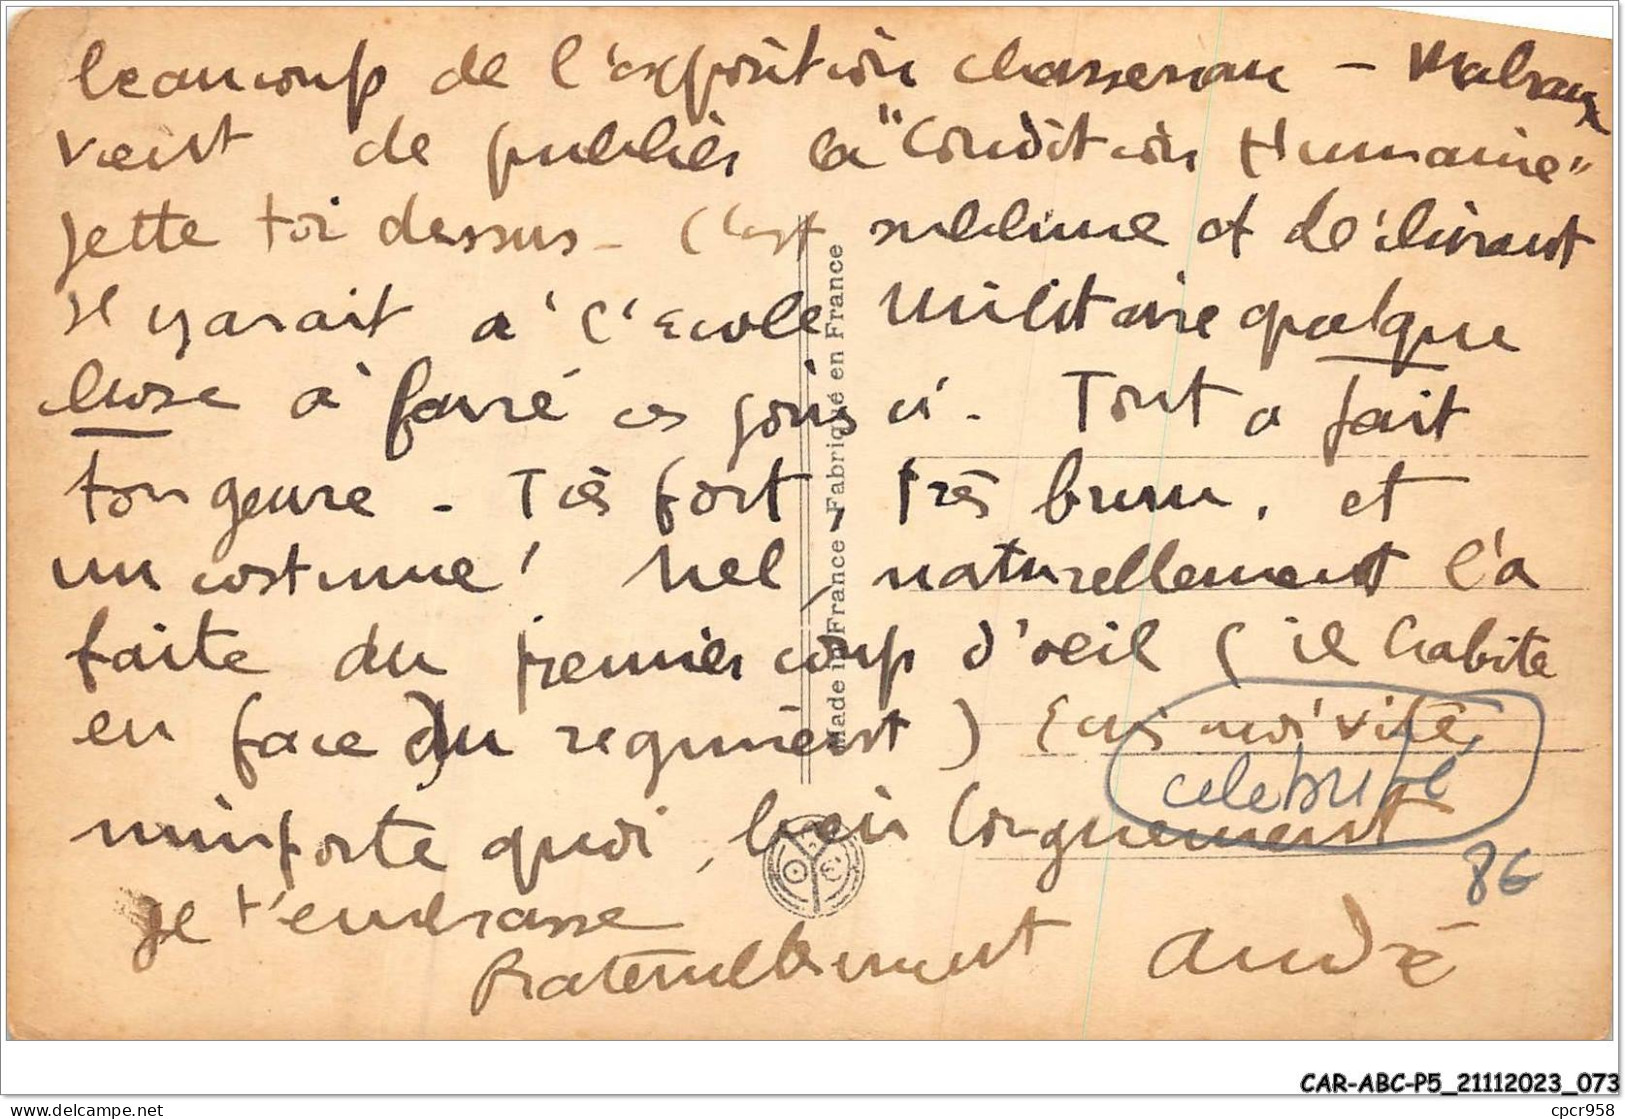 beaucoup de l'exposition chasseriau – Malraux
vient de publier la "Condition Humaine"
jette toi dessus – C'est sublime et délirant
Il y avait à l'Ecole Militaire quelque
chose à faire ces jours ci. Tout a fait
ton genre. Très fort, très brun, et
un costume! nel, naturellement l'a
faite du premier coup d'oeil (il habite
en face du regiment) Ecris moi vite,
celebrité
nimporte quoi, bien longuement
86
Je t'embrasse
fraternellement André
Made in France - Fabriqué en France
CAR-ABC-P5_21112023_073
www.delcampe.net
cpcr958